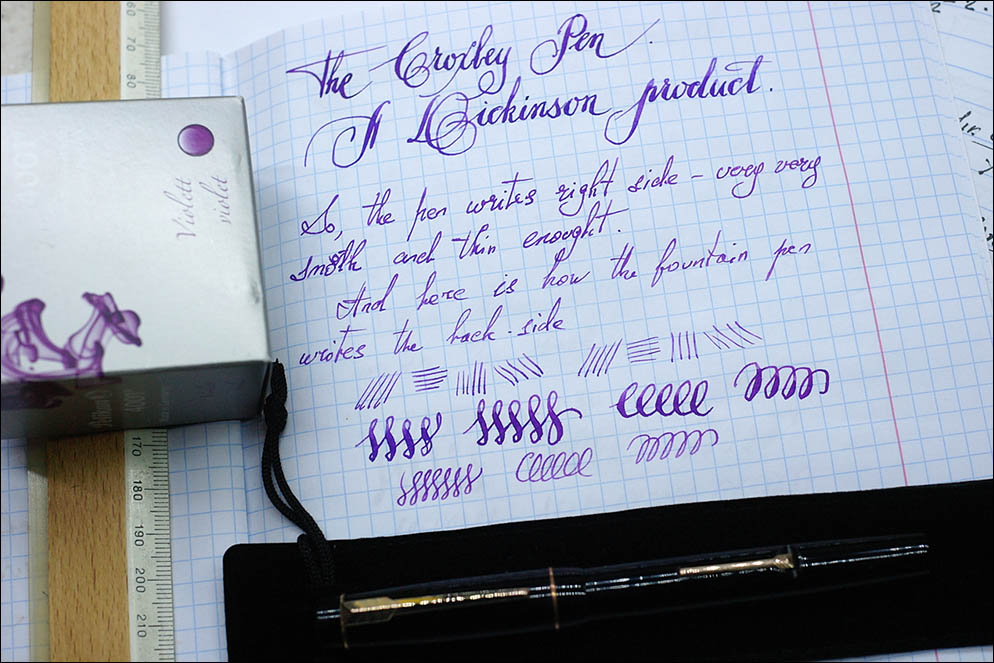 The Croxley Pen.
A Dickinson product.
So, the pen writes right side - very very
smoth and thin enought.
And here is how the fountain pen
writes the back-side
Violett
violet
60
70
80
4001
170
180
190
200
210